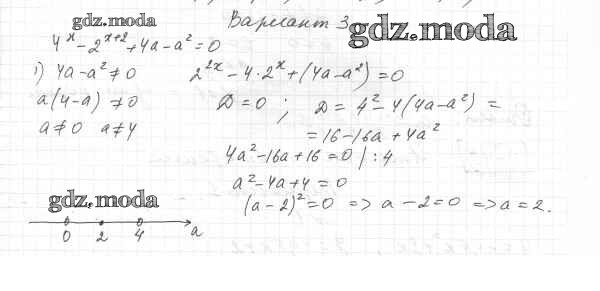 gdz.moda
Вариант 3
gdz.moda
4^x - 2^{x+2} + 4a - a^2 = 0
1) 4a - a^2 ≠ 0
2^{2x} - 4·2^x + (4a - a^2) = 0
a(4-a) ≠ 0
D = 0 ; D = 4^2 - 4(4a - a^2) =
a ≠ 0 a ≠ 4
= 16 - 16a + 4a^2
4a^2 - 16a + 16 = 0 | : 4
a^2 - 4a + 4 = 0
gdz.moda
(a - 2)^2 = 0 => a - 2 = 0 => a = 2.
0 2 4 a